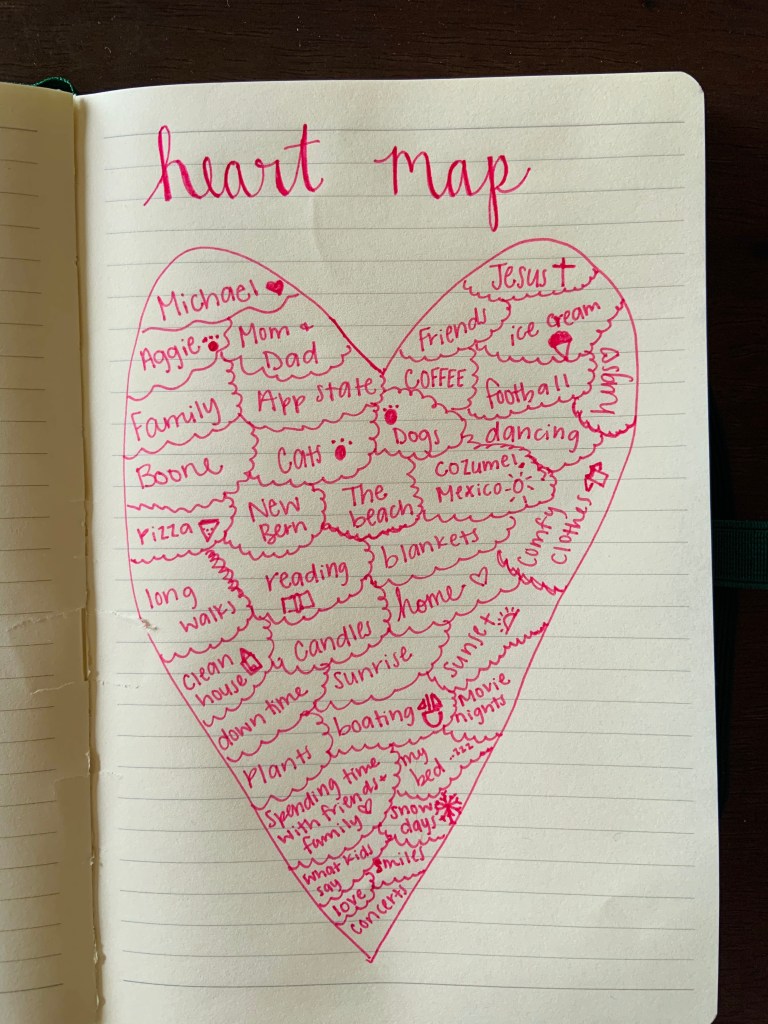 heart map
Michael
Jesus
Aggie
Mom +
Dad
Friends
ice cream
Family
App state
COFFEE
football
Boone
Cats
Dogs
dancing
Pizza
New
Bern
The
beach
Cozumel,
Mexico
comfy
clothes
long
walks
reading
blankets
home
clean
house
Candles
sunrise
sunset
down time
boating
Movie
nights
Plants
my
bed ..zzz
Spending time
with friends +
family
snow
days
what kids
say
smiles
love
concerts